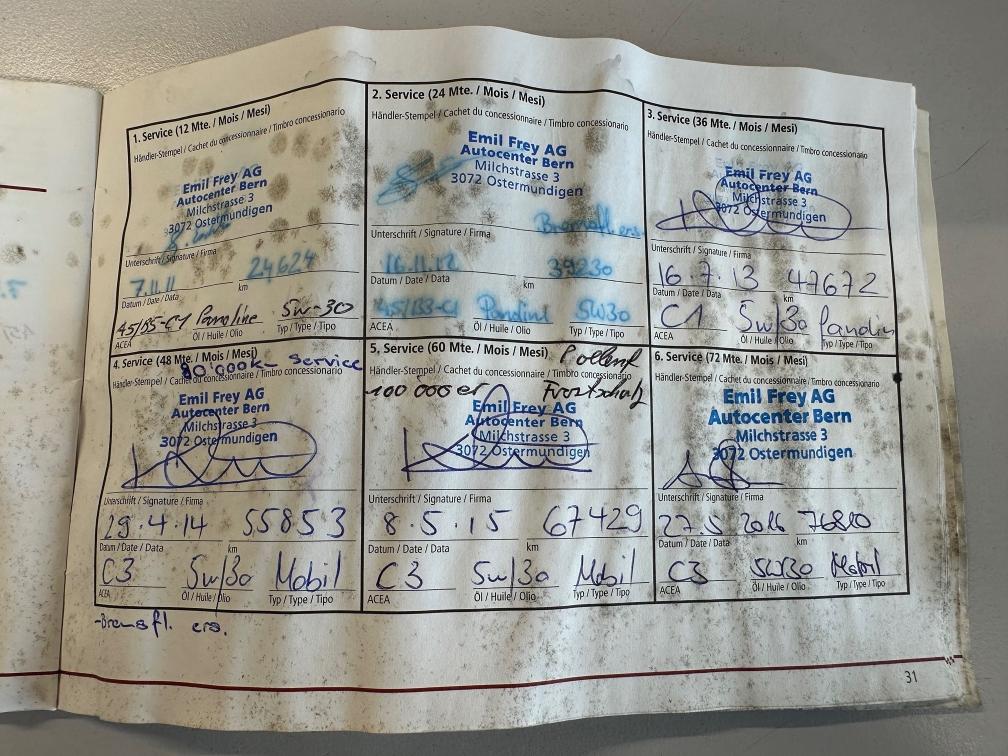 1. Service (12 Mte. / Mois / Mesi)
Händler-Stempel / Cachet du concessionnaire / Timbro concessionario
Emil Frey AG
Autocenter Bern
Milchstrasse 3
3072 Ostermundigen
Unterschrift / Signature / Firma
7.11.11 24624
Datum / Date / Data km
A5/B5-C1 Panoline 5W-30
ACEA Öl / Huile / Olio Typ / Type / Tipo
2. Service (24 Mte. / Mois / Mesi)
Händler-Stempel / Cachet du concessionnaire / Timbro concessionario
Emil Frey AG
Autocenter Bern
Milchstrasse 3
3072 Ostermundigen
Unterschrift / Signature / Firma
39230
Datum / Date / Data km
5W30
ACEA Öl / Huile / Olio Typ / Type / Tipo
3. Service (36 Mte. / Mois / Mesi)
Händler-Stempel / Cachet du concessionnaire / Timbro concessionario
Emil Frey AG
Autocenter Bern
Milchstrasse 3
3072 Ostermundigen
Unterschrift / Signature / Firma
16.7.13 47672
Datum / Date / Data km
C1 5w/30
ACEA Öl / Huile / Olio Typ / Type / Tipo
4. Service (48 Mte. / Mois / Mesi)
Service
Händler-Stempel / Cachet du concessionnaire / Timbro concessionario
Emil Frey AG
Autocenter Bern
Milchstrasse 3
3072 Ostermundigen
Unterschrift / Signature / Firma
29.4.14 55853
Datum / Date / Data km
C3 5w/30 Mobil
ACEA Öl / Huile / Olio Typ / Type / Tipo
-Bremsfl. ers.
5. Service (60 Mte. / Mois / Mesi) Pollenf
Händler-Stempel / Cachet du concessionnaire / Timbro concessionario
100 000er Frostschutz
Emil Frey AG
Autocenter Bern
Milchstrasse 3
3072 Ostermundigen
Unterschrift / Signature / Firma
8.5.15 67429
Datum / Date / Data km
C3 5w/30 Mobil
ACEA Öl / Huile / Olio Typ / Type / Tipo
6. Service (72 Mte. / Mois / Mesi)
Händler-Stempel / Cachet du concessionnaire / Timbro concessionario
Emil Frey AG
Autocenter Bern
Milchstrasse 3
3072 Ostermundigen
Unterschrift / Signature / Firma
27.5 2016
Datum / Date / Data km
C3 5W30 Mobil
ACEA Öl / Huile / Olio Typ / Type / Tipo
31